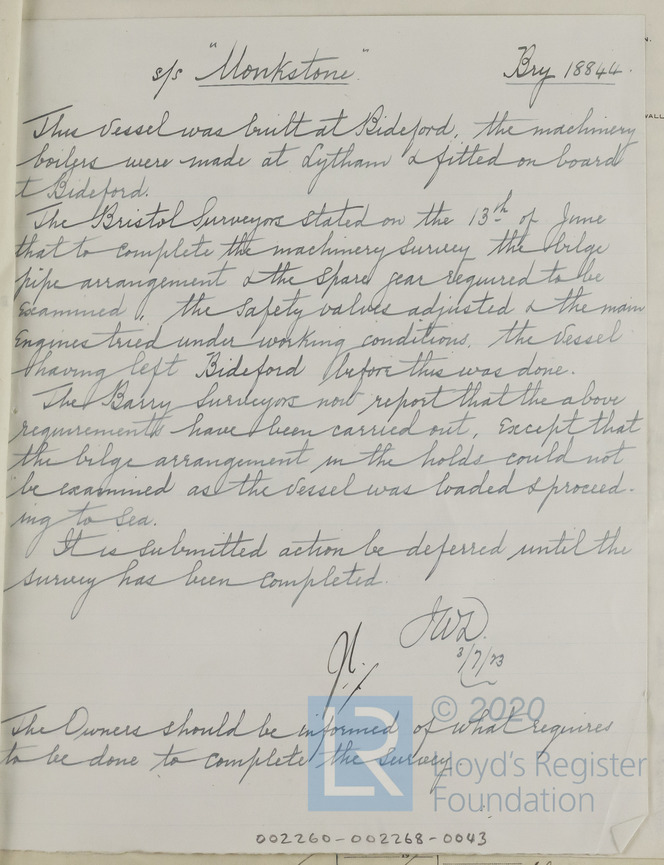 s/s "Monkstone" Bry 18844.
This Vessel was built at Bideford, the machinery
boilers were made at Lytham & fitted on board
t Bideford.
The Bristol Surveyors stated on the 13th of June
that to complete the machinery survey the bilge
pipe arrangement & the spare gear required to be
examined, the safety valves adjusted & the main
Engines tried under working conditions, the vessel
having left Bideford before this was done.
The Barry Surveyors now report that the above
requirements have been carried out, Except that
the bilge arrangement in the holds could not
be examined as the vessel was loaded & proceed-
ing to sea.
It is submitted action be deferred until the
survey has been completed.
JWD.
3/7/23
The Owners should be informed of what requires
to be done to complete the survey
LR
© 2020
Lloyd's Register
Foundation
002260-002268-0043